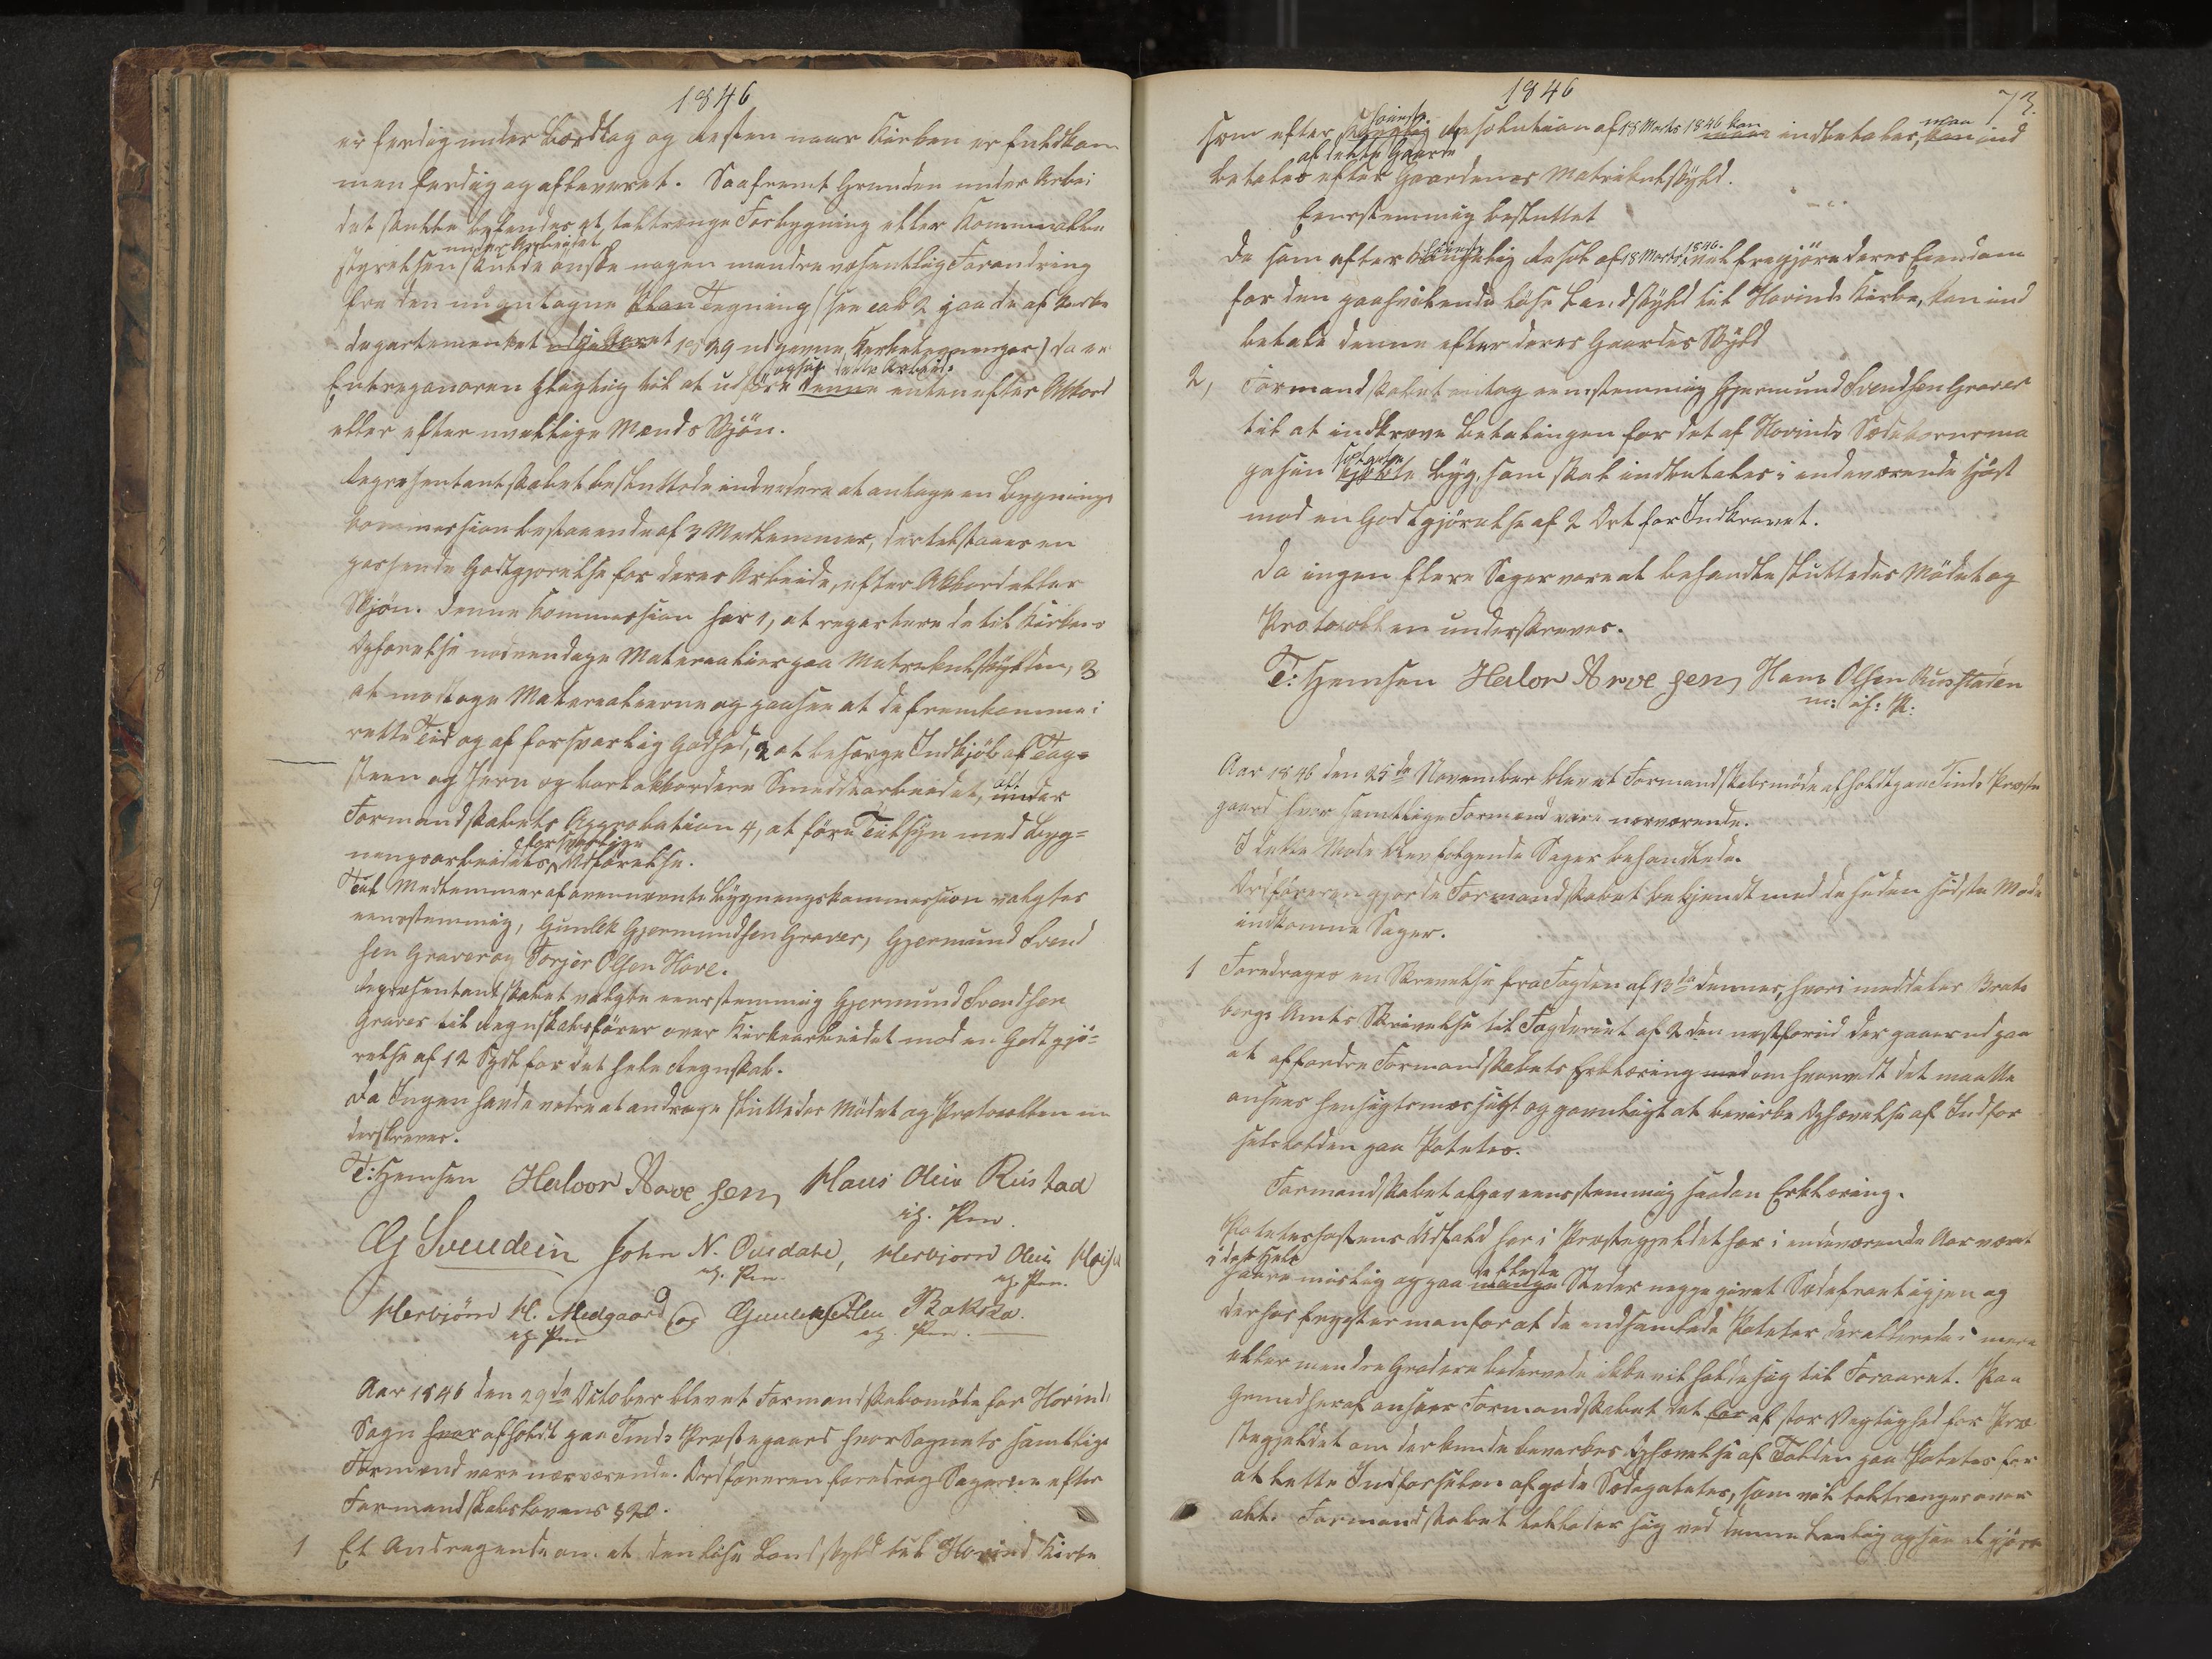 1846
er ferdig under Bordtag og Resten naar Kirken er fuldkom
men ferdig og afleveret. Saafremt Grunden under Arbei
det skulde befindes at tiltrænge Forbygning eller Kommunebe
styrelsen under Arbeidet skulde ønske nogen mindre væsentlig Forandring
fra den nu antagne Plan Tegning (see Tab 2 paa de af Kirke
departementet udgivne 1829 udgivne Kirketegninger) da er
Entreprenøren pligtig til at udføre ogsaa dette Arbeide denne enten efter Akkord
eller efter uvillige Mænds Skjøn.
Repræsentantskabet besluttede endvidere at antage en Bygnings
kommission bestaaende af 3 Medlemmer, der tilstaaes en
passende Godtgjørelse for deres Arbeide, efter Akkord eller
Skjøn. Denne Kommission har 1, at repartere de til Kirkens
Opførelse nødvendige Materialier paa Matrikulskylden, 3
at modtage Materialierne og paasee at de fremkomme i
rette Tid og af forsvarlig Godhed, 2 at besørge Indkjøb af Tag=
steen og Jern og bortakkordere Smeddearbeidet, alt under
Formandskabets Approbation 4, at føre Tilsyn med Byg=
ningsarbeidets forsvarlige Udførelse.
Til Medlemmer af ovennævnte Bygningskommission valgtes
eenstemmig, Gunlek Gjermundsen Graver, Gjermund Svend
sen Graver og Torjer Olsen Hove.
Repræsentantskabet valgte eenstemmig Gjermund Svendsen
Graver til Regnskabsfører over Kirkearbeidet mod en Godtgjø=
relse af 12 Spdl for det hele Regnskab.
Da Ingen havde videre at andrage sluttedes Mødet og Protocollen un
derskreves.
T: Hemsen Halvor Arvesen Hans Olsen Rustad
m. p. Pen.
G Svendsen John N. Ousdahl, Herbiorn Olsen Hoise
m. p. Pen. m. p. Pen.
Herbiørn H. Medgaard og Gunlek Olsen Bakka.
m. p. Pen m. p. Pen.
Aar 1846 den 29de October blev et Formandskabsmøde for Hovinds
Sogn hvor afholdt paa Tinds Præstegaard hvor Sognets samtlige
Formænd vare nærværende. Ordføreren foredrog Sagerne efter
Formandskabslovens § 20.
1 Et Andragende om at den løse Landskyld til Hovind Kirke
1846 73.
som efter høieste Kongelig Resolution af 18 Marts 1846 kan maae indbetales, maa kan ind
betales af dette Gaarde efter Gaardenes Matrikulskyld.
Eenstemmig besluttet
De som efter høieste Kongelig Resol af 18 Marts 1846. vil frigjøre deres Eiendom
for den paahvilende løse Landskyld til Hovinds Kirke, kan ind
betale denne efter deres Gaardes Skyld
2, Formandskabet antog eenstemmig Gjermund Svendsen Graver
til at indkræve Betalingen for det af Hovinds Sædekornsma
gasin solgte kjøbte Byg, som skal indbetales i indeværende Høst
mod en Godtgjørelse af 2 Ort for Indkravet.
Da ingen flere Sager vare at behandle sluttedes Mødet og
Protocollen underskreves.
T: Hemsen Halvor Arvesen Hans Olsen Russtaden
m: ih: P:
Aar 1846 den 25de November blev et Formandskabsmøde afholdt paa Tinds Præste
gaard hvor samtlige Formænd vare nærværende.
I dette Møde blev følgende Sager behandlede.
Ordføreren gjorde Formandskabet bekjendt med de siden sidste Møde
indkomne Sager.
1 Foredrages en Skrivelse fra Fogden af 13de dennes, hvori meddeles Brats
bergs Amts Skrivelse til Fogderiet af 2den næstforrid der gaaer ud paa
at affordre Formandskabets Erklæring med om hvorvidt det maatte
ansees hensigtsmæssigt og gavnligt at bevirke Ophævelse af Indfør
selstolden paa Poteter.
Formandskabet afgav eenstemmig saadan Erklæring.
Poteteshøstens Udfald har i Præstegjeldet her i indeværende Aar været
i det Hele saare mislig og paa de fleste mange Steder neppe givet Sædefroet igjen og
derhos frygter man for at de indsamlede Poteter der allerede i mere
eller mindre Grad ere bedærvede ikke vil holde sig til Foraaret. Paa
Grund heraf anseer Formandskabet det for af stor Vigtighed for Præ
stegjeldet om der kunde bevirkes Ophævelse af Tolden paa Poteter for
at lette Indførselen af gode Sædepoteter, som vil tiltrænges over
alt. Formandskabet tillader sig ved denne Leilighed at gjøre